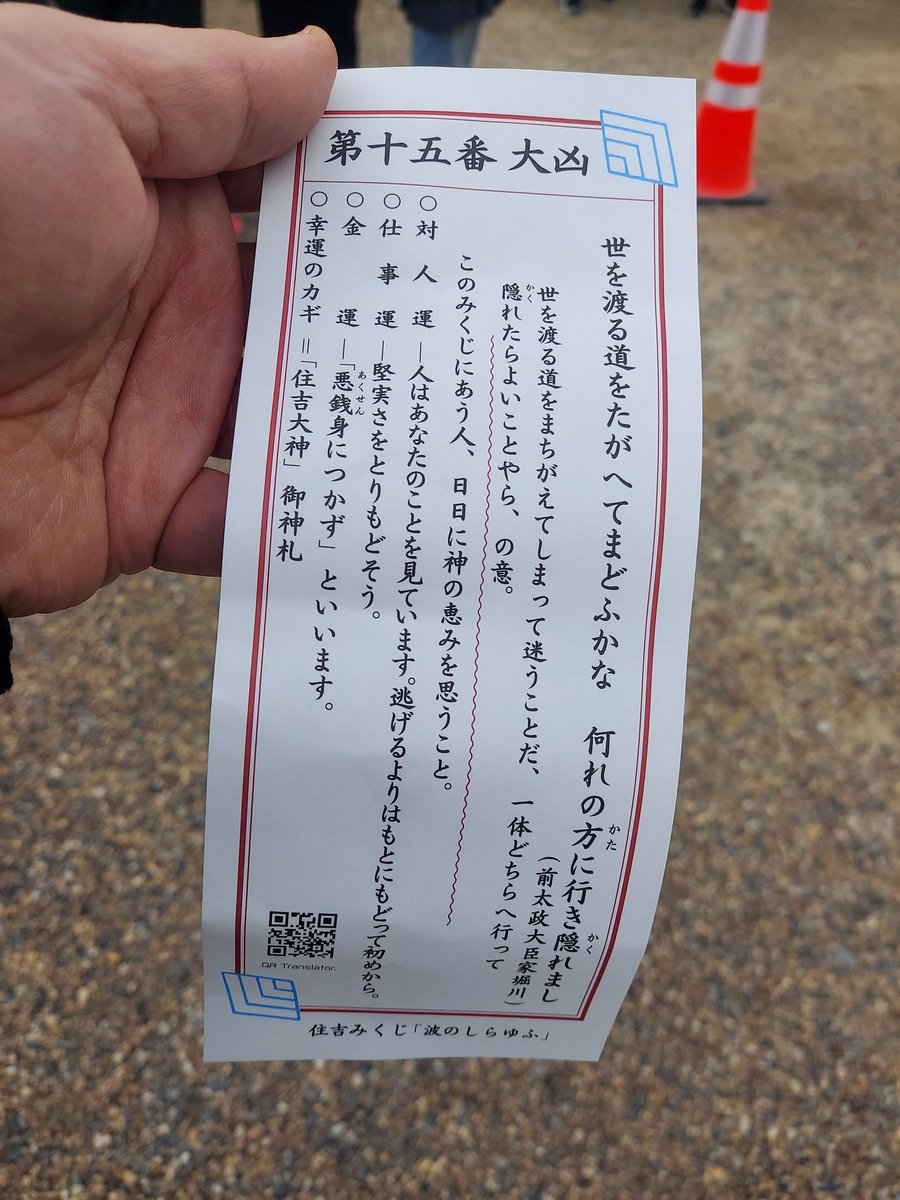 第十五番 大凶
世を渡る道をたがへてまどふかな 何れの方に行き隠れまし
かた
かく
(前太政大臣家堀川)
世を渡る道をまちがえてしまって迷うことだ、一体どちらへ行って
隠れたらよいことやら、の意。
かく
このみくじにあう人、日日に神の恵みを思うこと。
○対人運―人はあなたのことを見ています。逃げるよりはもとにもどって初めから。
○仕事運―堅実さをとりもどそう。
○金運―「悪銭身につかず」といいます。
あくせん
○幸運のカギ=「住吉大神」御神札
QR Translator.
住吉みくじ「波のしらゆふ」